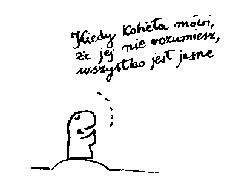 Kiedy kobieta mówi,
że jej nie rozumiesz,
wszystko jest jasne